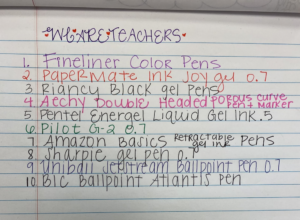 WE ARE TEACHERS
1. Fineliner Color Pens
2. PaperMate Ink Joy gel 0.7
3 Riancy Black gel Pens
4 Aechy Double Headed Porous Curve Pen + Marker
5 Pentel Energel Liquid Gel Ink .5
6 Pilot G-2 0.7
7 Amazon Basics Retractable gel ink Pens
8 Sharpie gel pen 0.7
9 Uniball Jetstream Ballpoint Pen 0.7
10 Bic Ballpoint Atlantis Pen